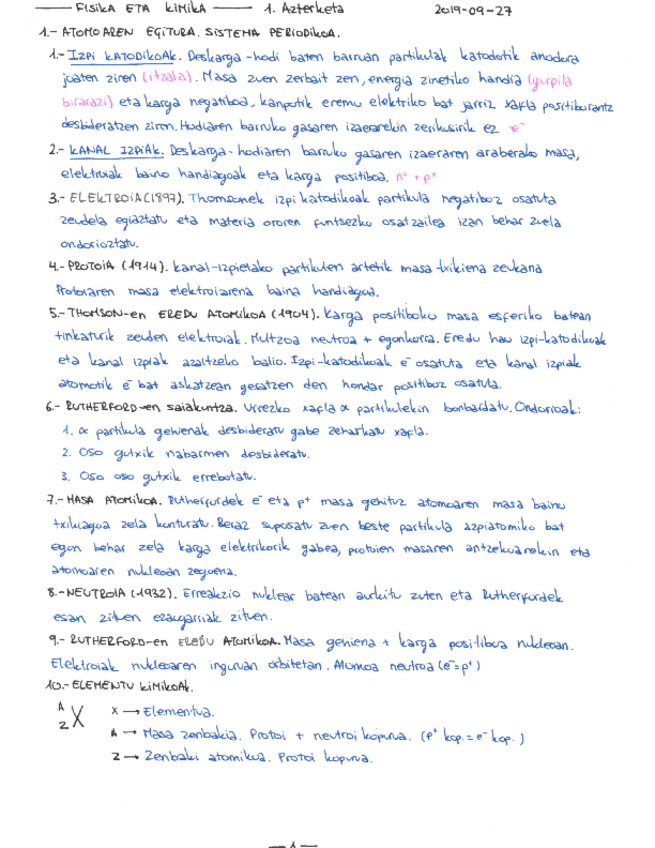 FISIKA ETA KIMIKA — 1. Azterketa 2019-09-27
1.- ATOMOAREN EGITURA. SISTEMA PERIODIKOA.
1.- IZPI KATODIKOAK. Deskarga-hodi baten barruan partikulak katodotik anodora
joaten ziren (itzala). Masa zuen zerbait zen, energia zinetiko handia (gurpila
birarazi) eta karga negatiboa, kanpotik eremu elektriko bat jarriz xafla positiborantz
desbideratzen ziren. Hodiaren barruko gasaren izaerarekin zerikusirik ez e⁻
2.- KANAL IZPIAK. Deskarga-hodiaren barruko gasaren izaeraren araberako masa,
elektroiak baino handiagoak eta karga positiboa. n° + p⁺
3.- ELEKTROIA (1897). Thomsonek izpi katodikoak partikula negatiboz osatuta
zeudela egiaztatu eta materia ororen funtsezko osatzailea izan behar zuela
ondorioztatu.
4.- PROTOIA (1914). Kanal-izpietako partikulen artetik masa txikiena zeukana
Protoiaren masa elektroiarena baina handiagoa.
5.- THOMSON-en EREDU ATOMIKOA (1904). Karga positiboko masa esferiko batean
tinkaturik zeuden elektroiak. Multzoa neutroa + egonkorra. Eredu hau izpi-katodikoak
eta kanal izpiak azaltzeko balio. Izpi-katodikoak e⁻ osatuta eta kanal izpiak
atomotik e⁻ bat askatzean geratzen den hondar positiboz osatuta.
6.- RUTHERFORD-en saiakuntza. Urrezko xafla α partikulekin bonbardatu. Ondorioak:
1. α partikula gehienak desbideratu gabe zeharkatu xafla.
2. Oso gutxik nabarmen desbideratu.
3. Oso oso gutxik errebotatu.
7.- MASA ATOMIKOA. Rutherfordek e⁻ eta p⁺ masa gehituz atomoaren masa baino
txikiagoa zela konturatu. Beraz suposatu zuen beste partikula azpiatomiko bat
egon behar zela karga elektrikorik gabea, protoien masaren antzekoarekin eta
atomoaren nukleoan zegoena.
8.- NEUTROIA (1932). Erreakzio nuklear batean aurkitu zuten eta Rutherfordek
esan zituen ezaugarriak zituen.
9.- RUTHERFORD-en EREDU ATOMIKOA. Masa gehiena + karga positiboa nukleoan.
Elektroiak nukleoaren inguruan orbitetan. Atomoa neutroa (e⁻=p⁺)
10.- ELEMENTU KIMIKOAK.
A
Z X
X → Elementua.
A → Masa zenbakia. Protoi + neutroi kopurua. (p⁺ kop. = e⁻ kop.)
Z → Zenbaki atomikoa. Protoi kopurua.
— 1 —